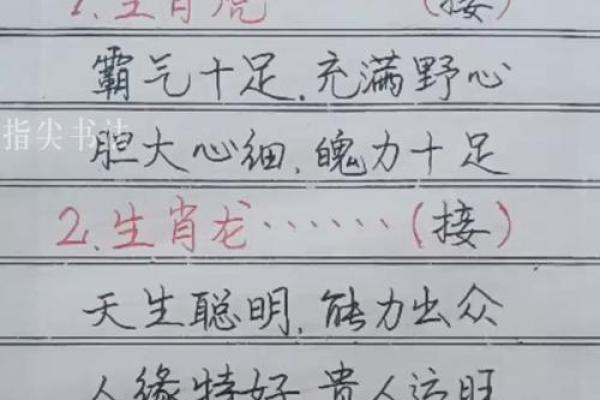 1.生肖虎 (接)
霸气十足.充满野心
指尖书法
胆大心细.魄力十足
2.生肖龙……(接)
天生聪明.能力出众
人缘特好.贵人运旺